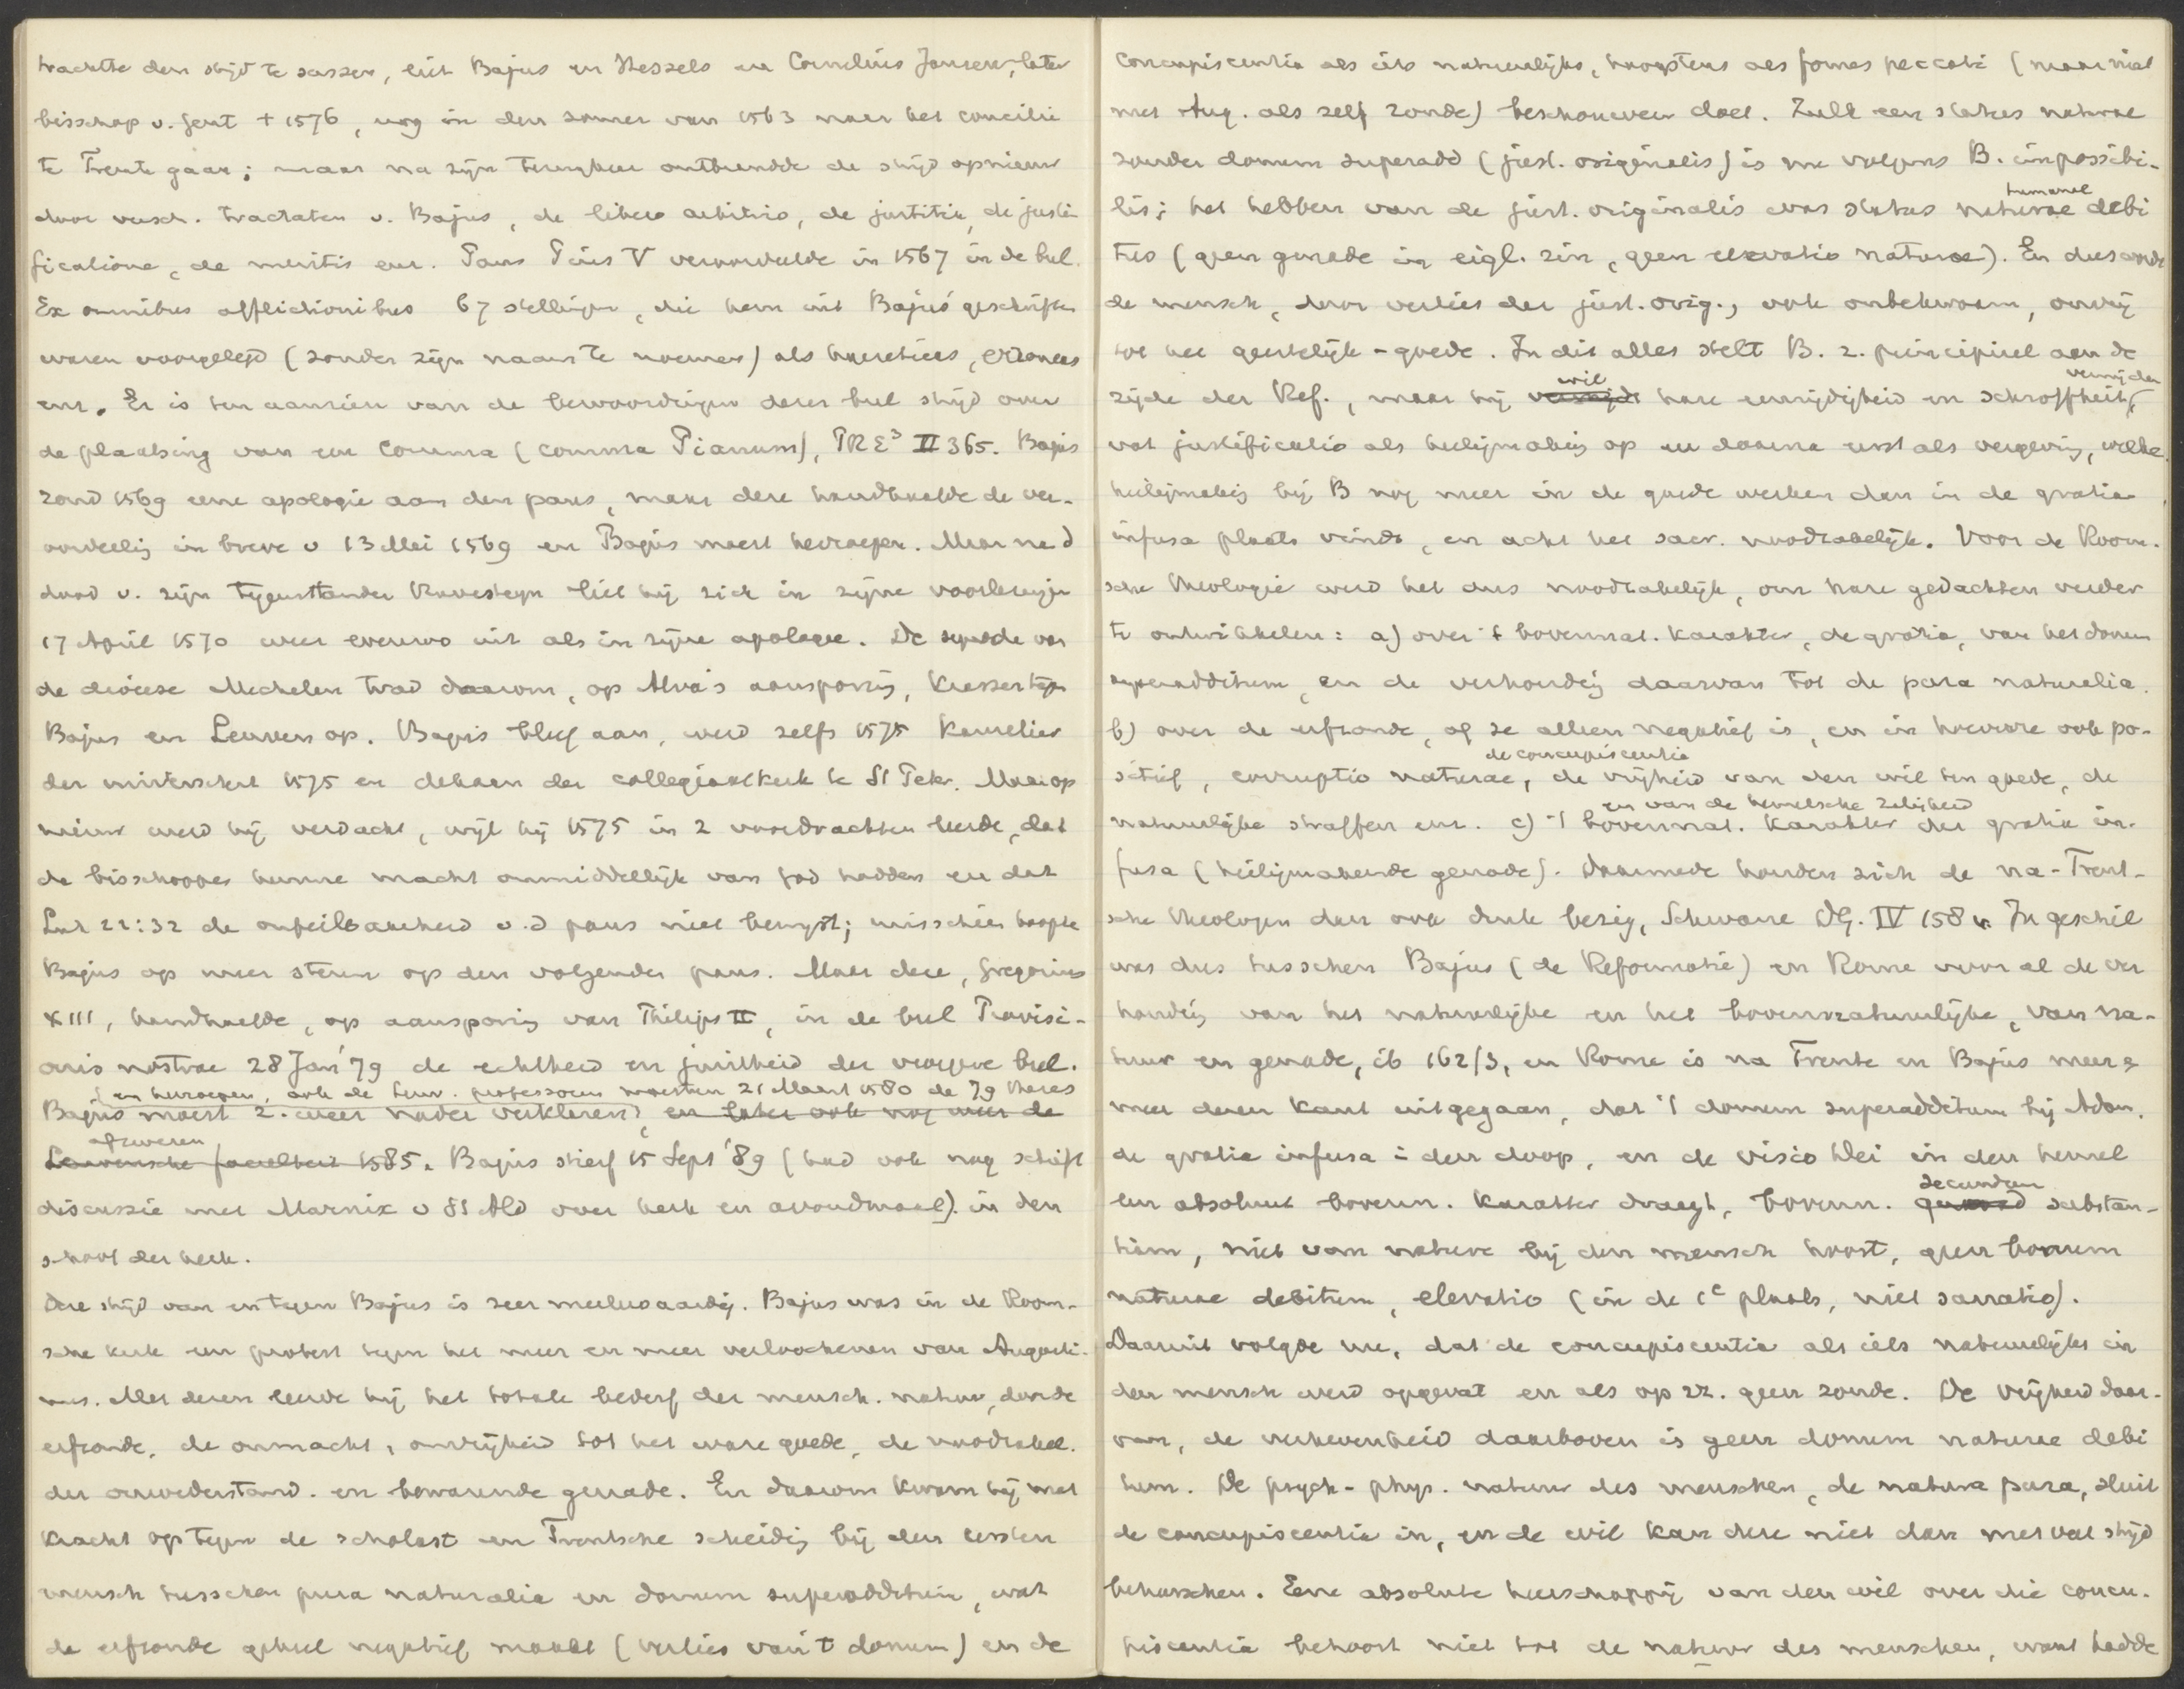 trachtte den strijd te sussen, liet Bajus en Hessels en Cornelius Jansen, later
bisschop v. Gent † 1576, nog in den zomer van 1563 naar het concilie
te Trente gaan; maar na zijn terugkeer ontbrandde de strijd opnieuw
door versch. tractaten v. Bajus, de libero arbitrio, de justitia, de justi-
ficatione, de meritis enz. Paus Pius V veroordeelde in 1567 in de bul
Ex omnibus afflictionibus 67 stellingen, die hem uit Bajus' geschriften
waren voorgelegd (zonder zijn naam te noemen) als haereticas, erroneas
enz. Er is ten aanzien van de bewoordingen dezer bul strijd over
de plaatsing van een comma (comma Pianum), PRE³ II 365. Bajus
zond 1569 eene apologie aan den paus, maar deze handhaafde de ver-
oordeelig in breve v 13 Mei 1569 en Bajus moest herroepen. Maar na d
dood v. zijn tegenstander Ravesteyn liet hij zich in zijne voorlezingen
17 April 1570 weer evenzoo uit als in zijne apologie. De synode van
de diocese Mechelen trad daarom, op Alva's aansporing, tegen
Bajus en Leuven op. Bajus bleef aan, werd zelfs 1575 kanselier
der universiteit 1575 en deken der collegiaalkerk te St Peter. Maar op
nieuw werd hij verdacht, wijl hij 1575 in 2 voordrachten leerde, dat
de bisschoppen hunne macht onmiddellijk van God hadden en dat
Luk 22:32 de onfeilbaarheid v.d paus niet bewijst; misschien hoopte
Bajus op meer steun op den volgenden paus. Maar deze, Gregorius
XIII, handhaafde, op aansporing van Philips II, in de bul Provisi-
onis nostrae 28 Jan '79 de echtheid en juistheid der vroegere bul.
en herroepen, ook de Leuv. professoren moesten 21 Maart 1580 de 79 theses
Bajus moest z. weer nader verklaren, en later ook nog weer de
afzweren
Leuvensche faculteit 1585. Bajus stierf 15 Sept '89 (had ook nog schift
discussie met Marnix v St Ald over kerk en avondmaal) in den
schoot der kerk.
Deze strijd van en tegen Bajus is zeer merkwaardig. Bajus was in de Room-
sche kerk een protest tegen het meer en meer verloochenen van Augusti-
nus. Met dezen leerde hij het totale bederf der mensch. natuur, door de
erfzonde, de onmacht, onvrijheid tot het ware goede, de noodzakel.
der onwederstand. en bewarende genade. En daarom kwam hij met
kracht op tegen de scholast en Trentsche scheidig bij den eersten
mensch tusschen pura naturalia en donum superadditum, wat
de erfzonde geheel negatief maakt (verlies van 't donum) en de
concupiscentia als iets natuurlijks, hoogstens als fomes peccati (maar niet
met Aug. als zelf zonde) beschouwen doet. Zulk een status naturae
zonder donum superadd (just. originalis) is nu volgens B. impossibi-
humanae
lis; het hebben van de just. originalis was status naturae debi
tus (geen genade in eigl. zin, geen elevatio naturae). En dus werd
de mensch, door verlies der just. orig., ook onbekwaam, onvrij
tot het geestelijk-goede. In dit alles stelt B. z. principieel aan de
wil vermijden
zijde der Ref., maar hij vermijdt hare eenzijdigheid en schroffheit,
vat justificatio als heiligmakig op en daarna eerst als vergeving, welke
heiligmakig bij B nog meer in de goede werken dan in de gratia
infusa plaats vindt, en acht het sacr. noodzakelijk. Voor de Room-
sche theologie werd het dus noodzakelijk, om hare gedachten verder
te ontwikkelen: a) over 't bovennat. karakter, de gratia, van het donum
superadditum, en de verhoudig daarvan tot de pura naturalia.
b) over de erfzonde, of ze alleen negatief is, en in hoeverre ook po-
de concupiscentia
sitief, corruptio naturae, de vrijheid van den wil ten goede, de
en van de hemelsche zaligheid
natuurlijke straffen enz. c) 't bovennat. karakter der gratia in-
fusa (heiligmakende genade). Daarmede houden zich de na-Trent-
sche theologen dan ook druk bezig, Schwane DG. IV 158 v. In geschil
was dus tusschen Bajus (de Reformatie) en Rome vooral de ver
houdig van het natuurlijke en het bovennatuurlijke, van na-
tuur en genade, ib 162/3, en Rome is na Trente en Bajus meer &
meer dezen kant uitgegaan, dat 't donum superadditum bij Adam,
de gratia infusa in den doop, en de visio Dei in den hemel
secundum
een absoluut bovenn. karakter draagt, bovenn. substan-
tiam, niet van nature bij den mensch hoort, geen bonum
naturae debitum, elevatio (in de 1e plaats, niet sanatio).
Daaruit volgde nu, dat de concupiscentia als iets natuurlijks in
den mensch werd opgevat en als op zz. geen zonde. De vrijheid daar-
van, de verhevenheid daarboven is geen donum naturae debi
tum. De psych-phys. natuur des menschen, de natura pura, sluit
de concupiscentia in, en de wil kan deze niet dan met veel strijd
beheerschen. Eene absolute heerschappij van den wil over die concu-
piscentia behoort niet tot de natuur des menschen, want hadde